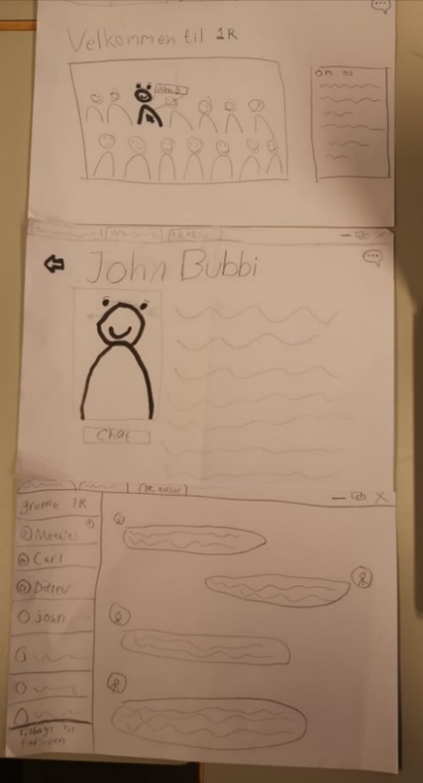 Velkommen til 1R
om os
John Bubbi
Chat
gruppe 1R
Mathies
Carl
Ditlev
john
Tilbage til